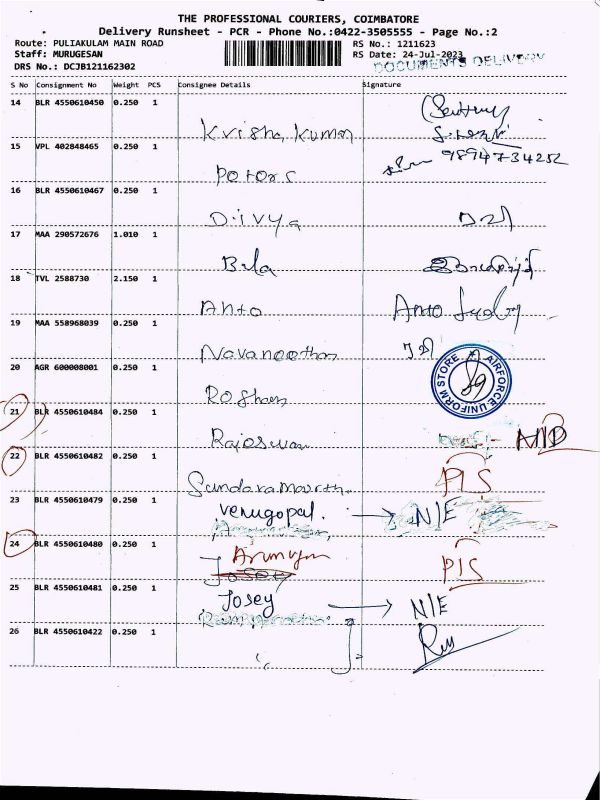 THE PROFESSIONAL COURIERS, COIMBATORE
Delivery Runsheet - PCR - Phone No.:0422-3505555 - Page No.:2
Route: PULIAKULAM MAIN ROAD RS No.: 1211623
Staff: MURUGESAN RS Date: 24-Jul-2023
DRS No.: DCJB121162302 DOCUMENTS DELIVERY
S No Consignment No Weight PCS Consignee Details Signature
14 BLR 4550610450 0.250 1
Krishna Kumar
15 VPL 402848465 0.250 1 9894734252
Peters
16 BLR 4550610467 0.250 1
Divya
17 MAA 290572676 1.010 1
Bala
18 TVL 2588730 2.150 1
Anto Anto
19 MAA 558968039 0.250 1
Navaneethan
20 AGR 600008001 0.250 1 AIRFORCE UNIFORM STORE
Roshan
21 BLR 4550610484 0.250 1
Rajeswari
22 BLR 4550610482 0.250 1 PIS
Sundaramoorth
23 BLR 4550610479 0.250 1 Venugopal. N/E
24 BLR 4550610480 0.250 1
Arumugam PIS
25 BLR 4550610481 0.250 1 Josey N/E
26 BLR 4550610422 0.250 1